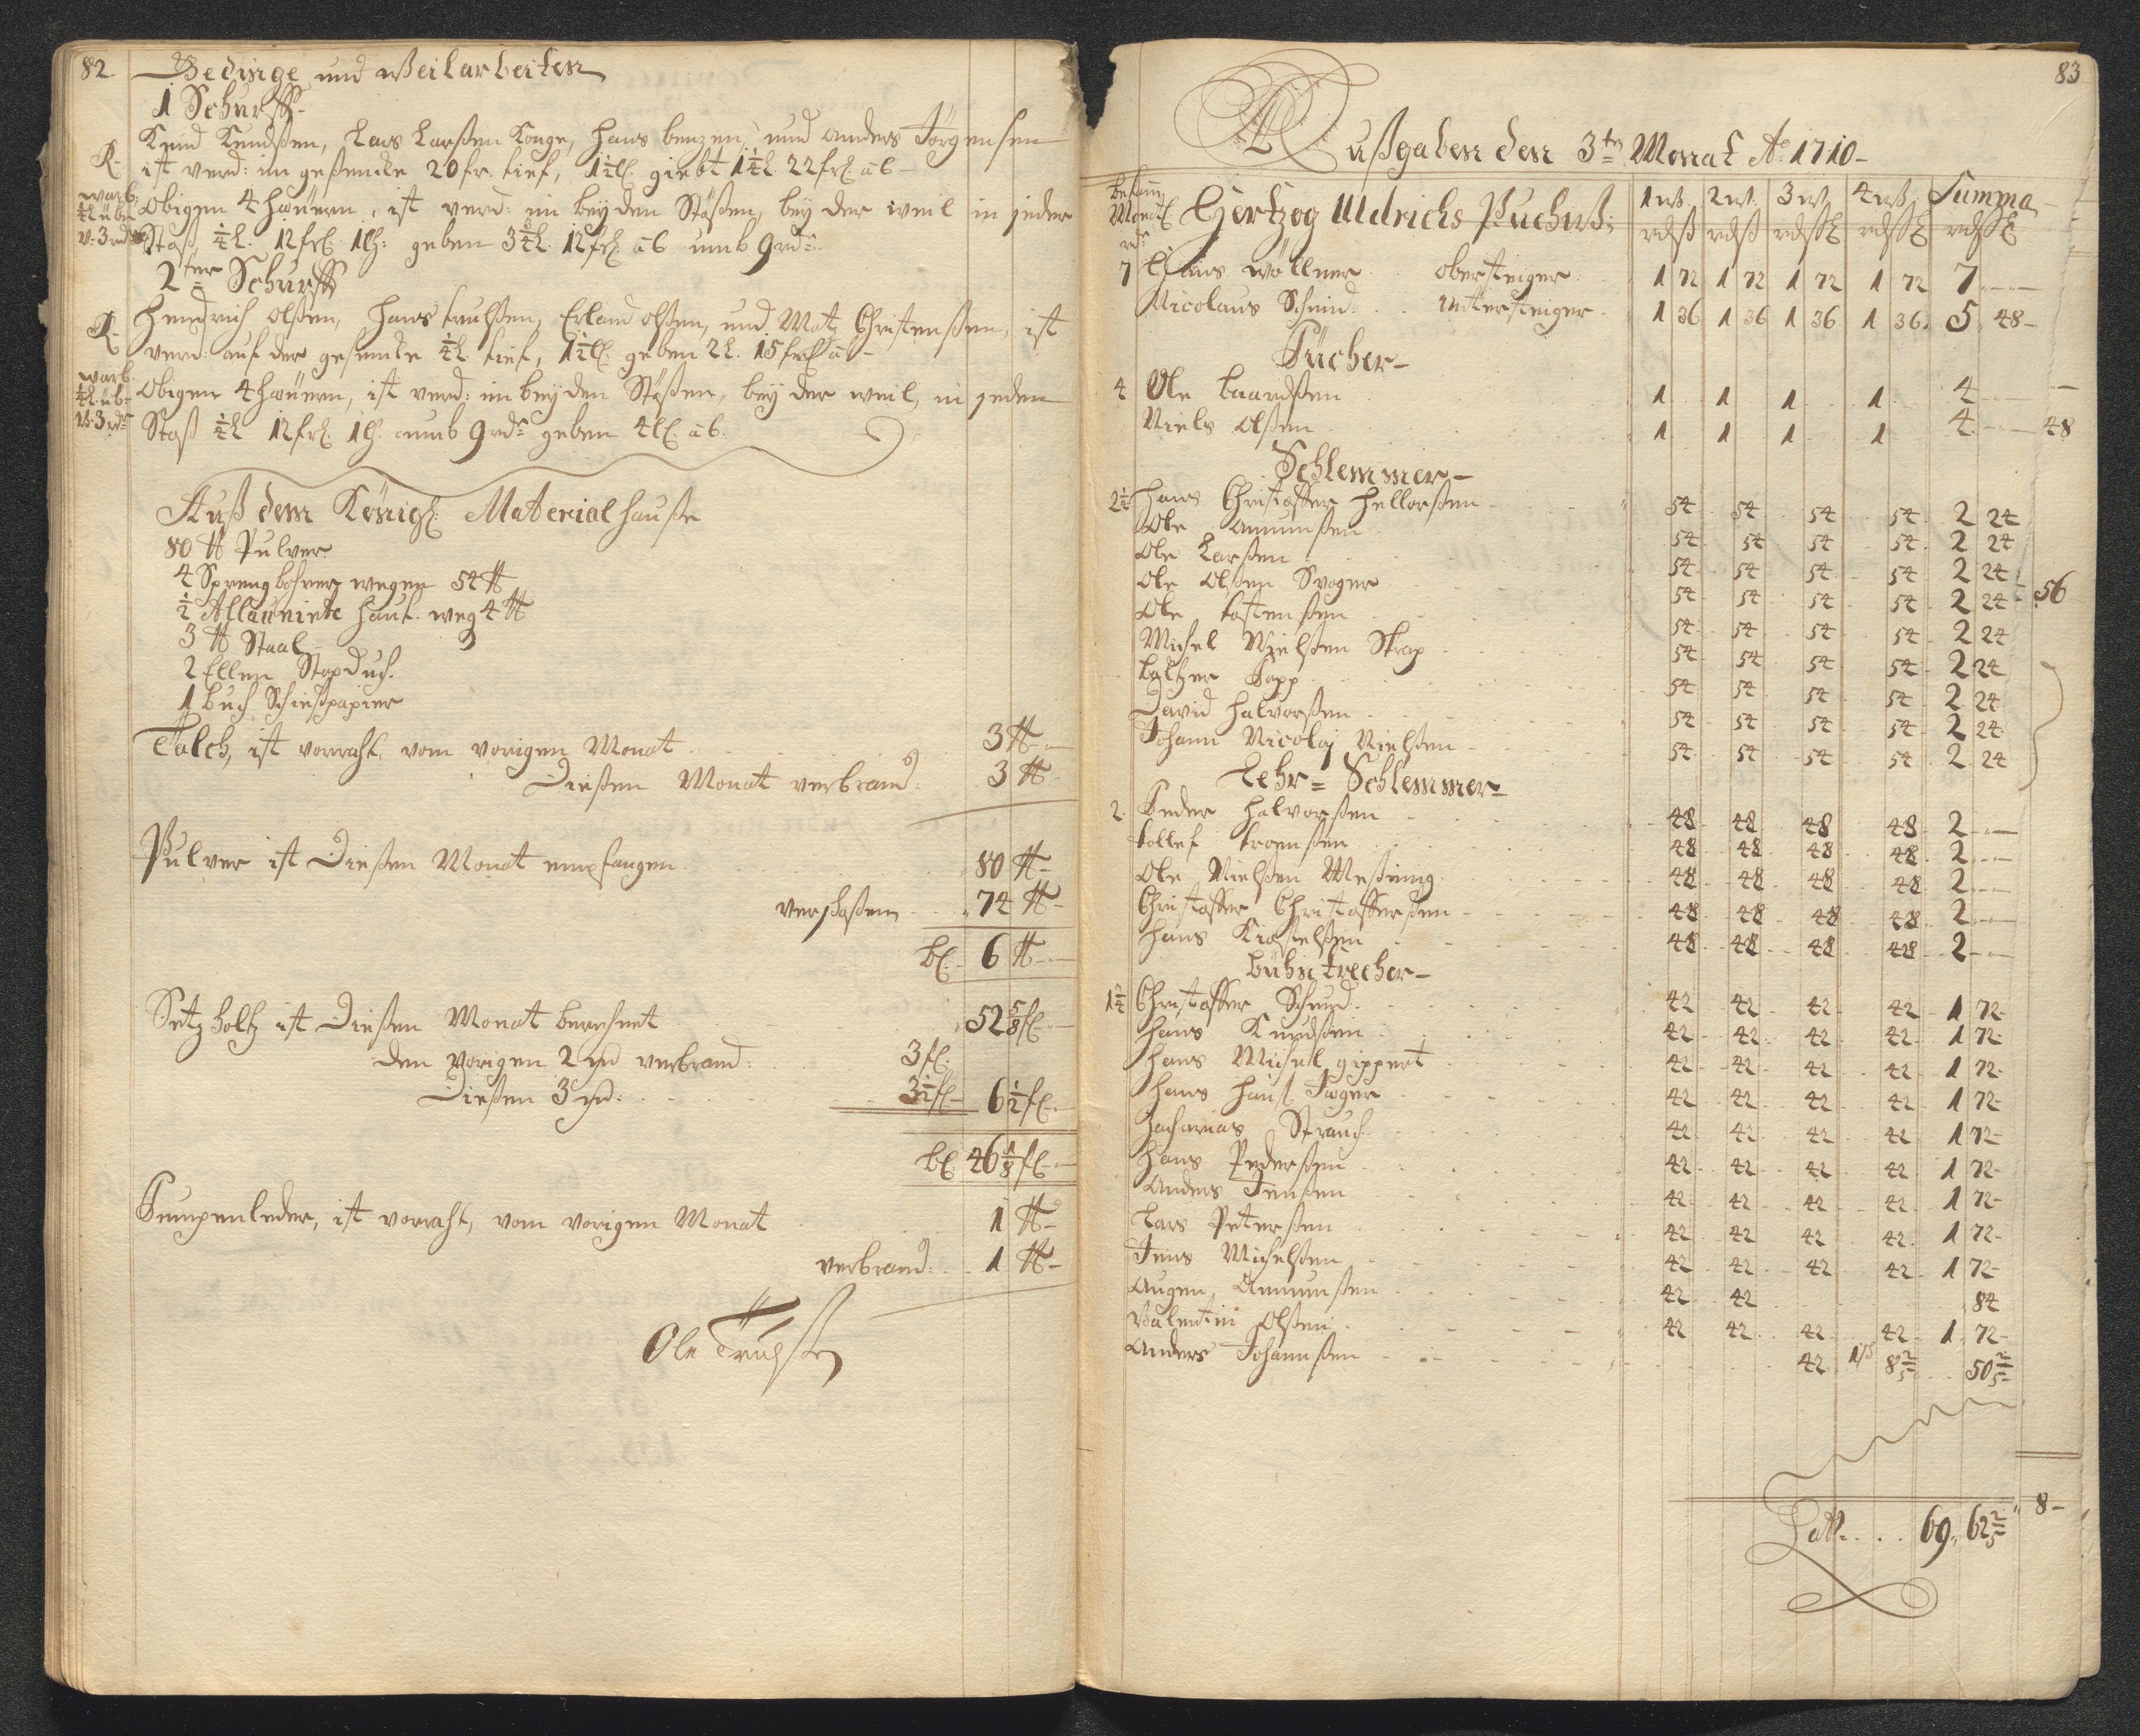 82
Bedinge und weilarbeiten
1 Schurff
Knud Knudßen, Lars Larßen Konge, Hans benzen, und Anders Jörgensen
ist verd: im geßencke 20 fr. tief, 1½ giebt 1¼ L. 22 frl. a 6
Obigen 4 häuern, ist verd: in beyden Stößen, bey der weil in jeder
Stoß ¼ L. 12 frl. 1 geben 3¼ L. 12 frl. a 6 umb 9 rd
2ter Schurff
Hendrich Olßen, Hans Erland Olßen, und Matz Christenßen, ist
verd: auf der gesencke ¼ L. tief, 1½ geben 2 L. 15 frl a
Obigen 4 häuern, ist verd: in beyden Stößen, bey der weil, in jeden
Stoß ¼ L 12 frl. 1 umb 9 rd geben 4 a 6.
Auß dem Königl: Material hauße
80 ℔ Pulver
4 Sprengbohrer wegen 54 ℔
½ Allaunirte haut. weg 4 ℔
3 ℔ Staal
2 Ellen Stopduch.
1 buch Schießpapier
Talch, ist vorraht, vom vorigen Monat 3 ℔
Dießen Monat verbrand: 3 ℔
Pulver ist Dießen Monat empfangen 80 ℔
verschoßen 74 ℔
bl: 6 ℔
Setzholtz ist Dießen Monat berechnet 52⅝ fl
den vorigen 2 M verbrand: 3 fl.
Dießen 3 M: 3½ fl 6½ fl
bl. 46⅛ fl
Pumpenleder, ist vorraht, vom vorigen Monat 1 ℔
verbrand: 1 ℔
Ole
83
Außgaben den 3ten Monat Ao 1710
Hertzog Uldrichs Puchw: 1 w. 2 w. 3 w. 4 w. Summa
7 Hans Wöllner Obersteiger 1 72 1 72 1 72 1 72 7
Nicolaus Schmid Untersteiger 1 36 1 36 1 36 1 36 5 48
Pücher
4 Ole baardßen 1 1 1 1 4
Niels Olßen 1 1 1 1 4 48
Schlemmer
2¼ Hans Christoffer Hellorßen 54 54 54 54 2 24
Ole Amunßen 54 54 54 54 2 24
Ole Larßen 54 54 54 54 2 24
Ole Olßen Svoger 54 54 54 54 2 24 56
Ole tostenßen 54 54 54 54 2 24
Michel Nielßen Strap 54 54 54 54 2 24
baltzer Popp 54 54 54 54 2 24
David Halvorßen 54 54 54 54 2 24
Johann Nicolaj Nielßen 54 54 54 54 2 24
Lehr= Schlemmer
2 Peder Halvorßen 48 48 48 48 2
tollef 48 48 48 48 2
Ole Nielßen Meßning 48 48 48 48 2
Christoffer Christofferßen 48 48 48 48 2
Hans Kiostelßen 48 48 48 48 2
bühntrecher
1¾ Christoffer Schmid 42 42 42 42 1 72
Hans Knudßen 42 42 42 42 1 72
Hans Michel gippert 42 42 42 42 1 72
Hans Hanß Jæger 42 42 42 42 1 72
Zacharias Strauch 42 42 42 42 1 72
Hans Pederßen 42 42 42 42 1 72
Anders Jenßen 42 42 42 42 1 72
Lars Peterßen 42 42 42 42 1 72
Jens Michelßen 42 42 42 42 1 72
Augen Amunßen 42 42 84
Valentin Olßen 42 42 42 42 1 72
Anders Johanßen 42 8⅖ 50⅖
8
Latt: 69 62⅖